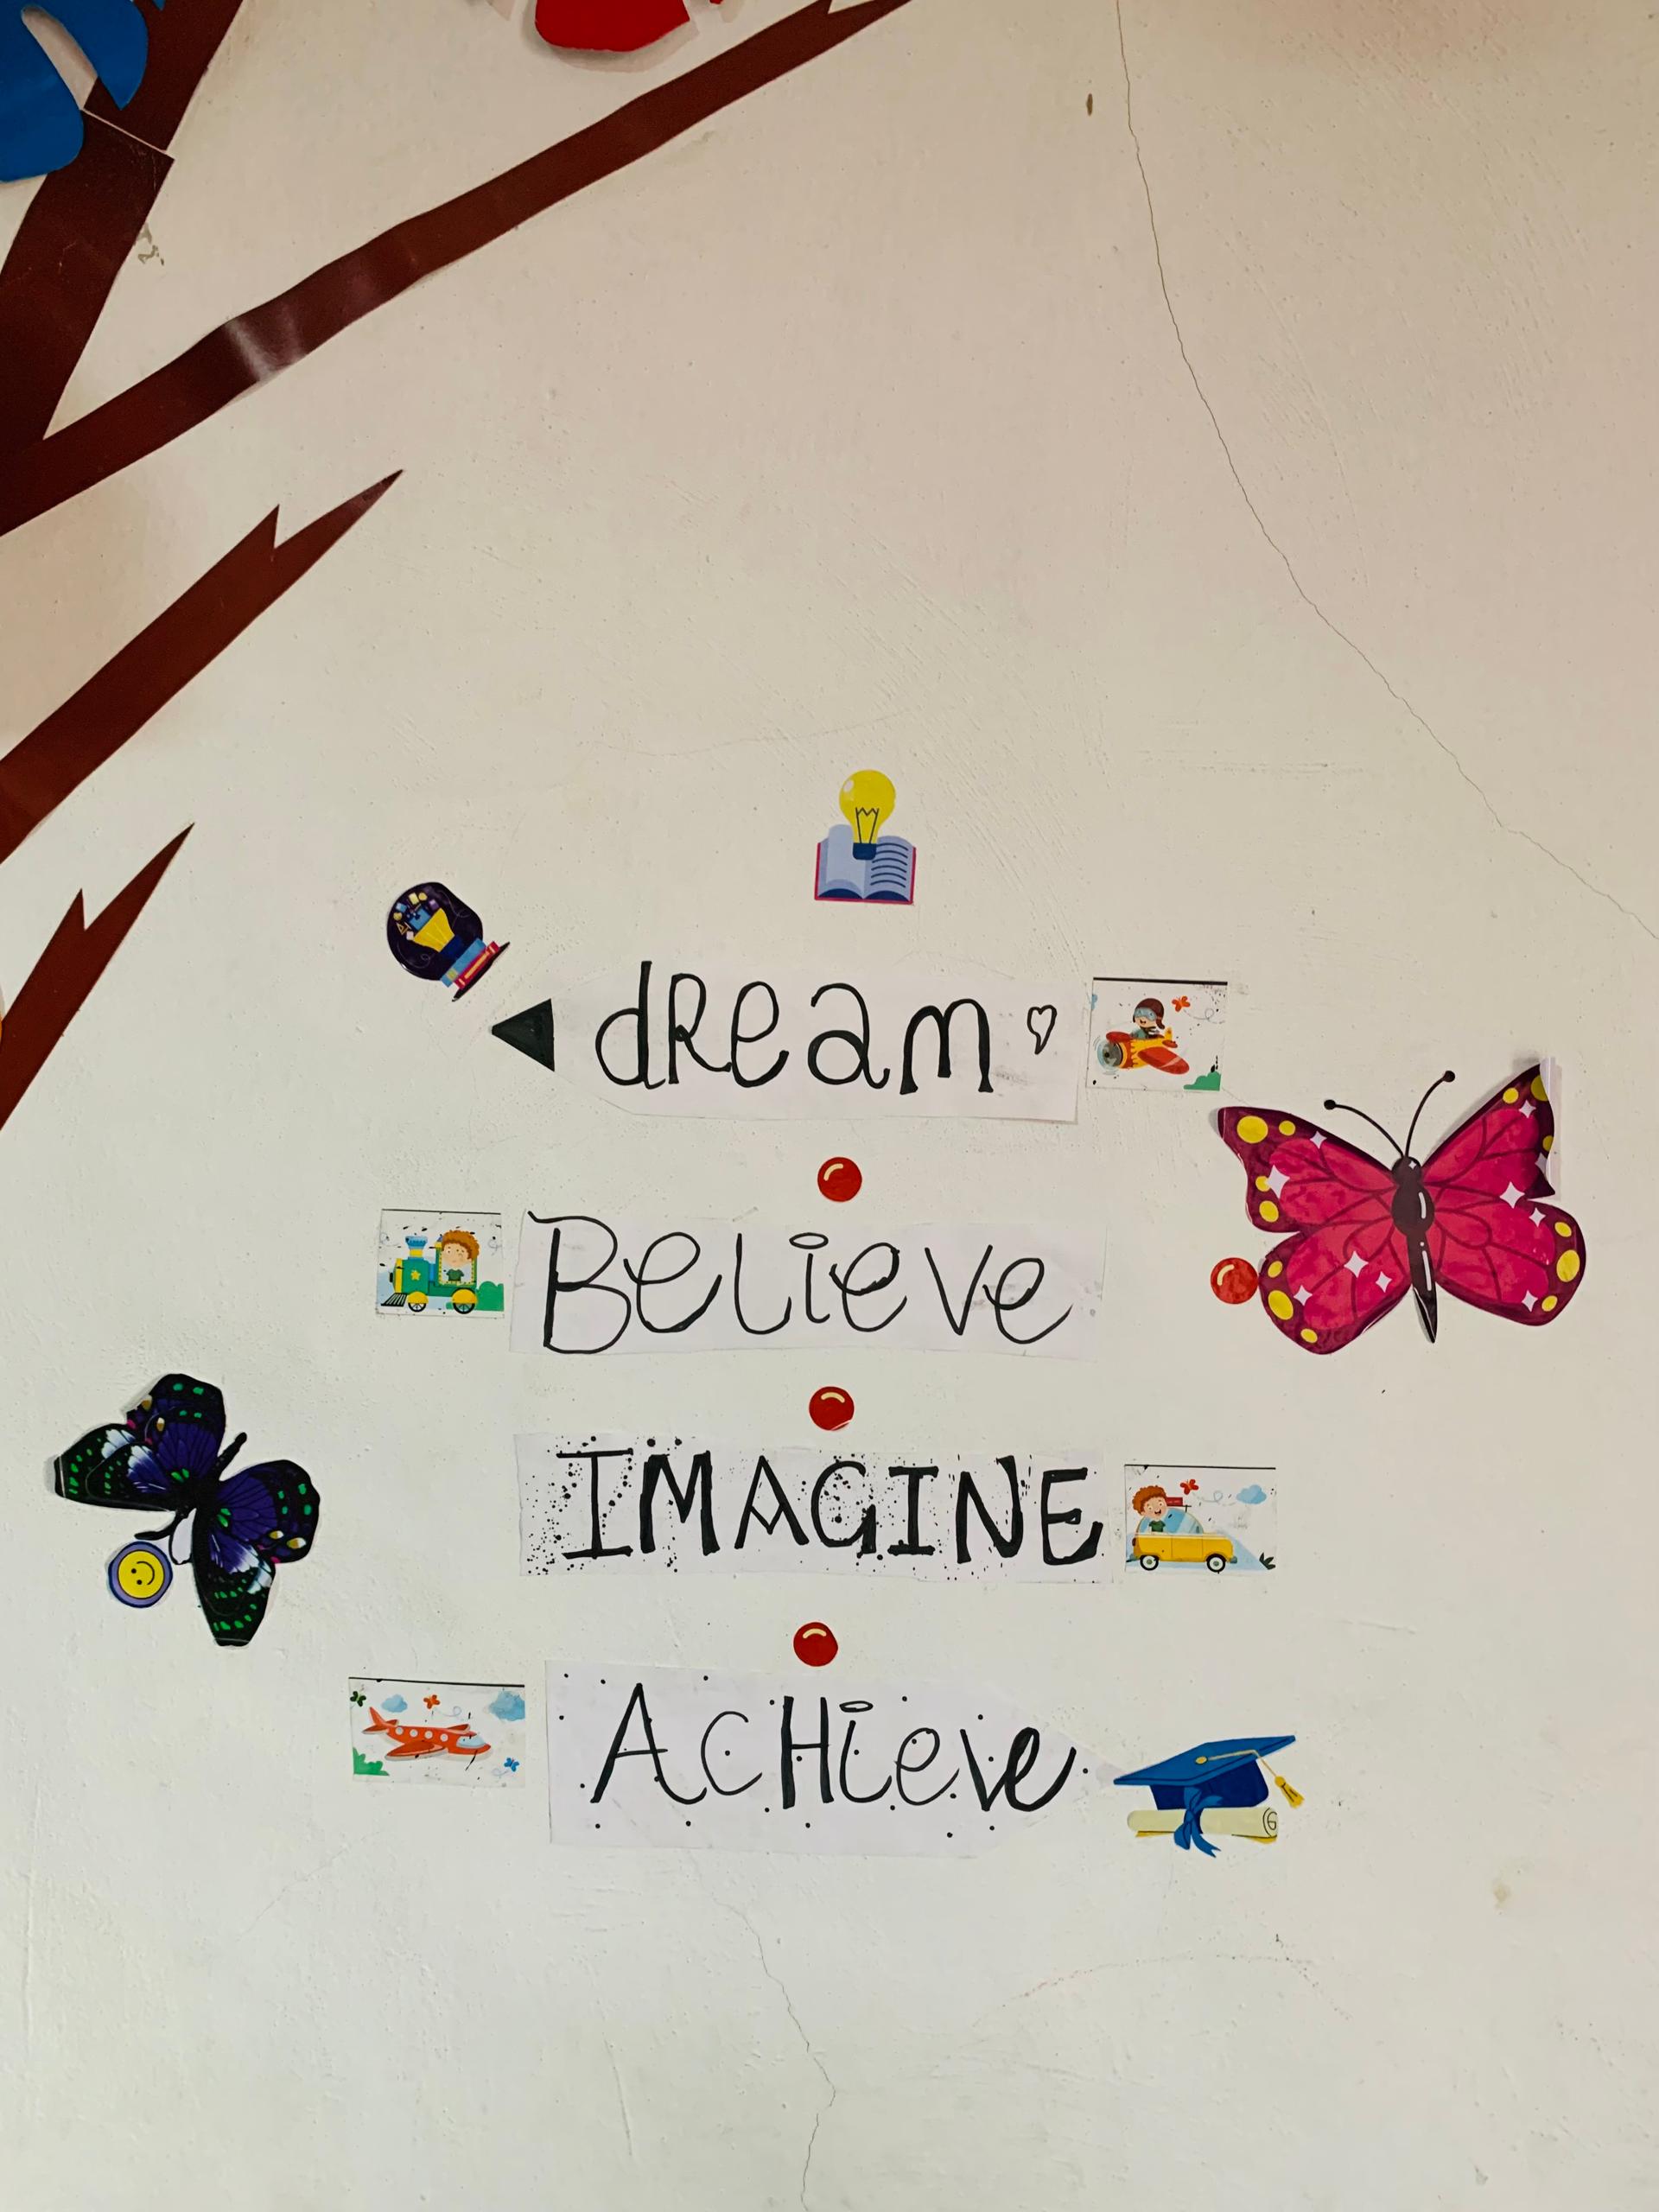 dReam
BeLieve
IMAGINE
AcHieve